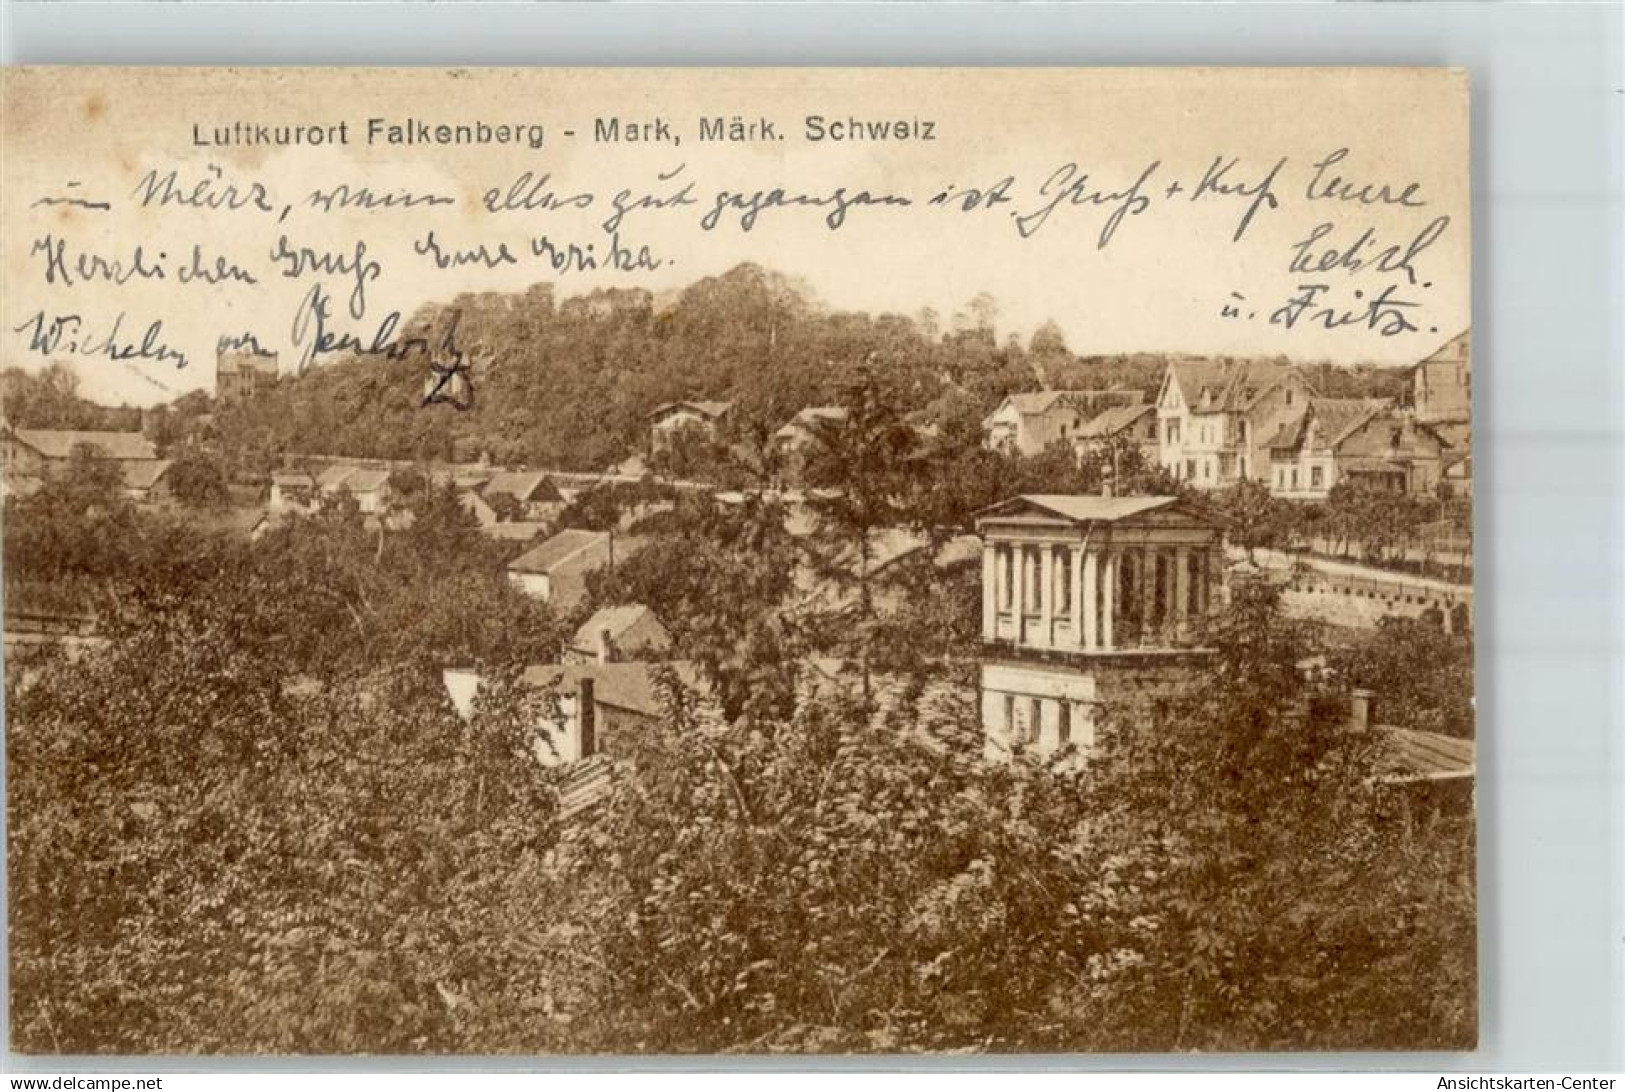 Luftkurort Falkenberg - Mark, Märk. Schweiz
im März, wenn alles gut gegangen ist. Gruß + Kuß Eure
Herzlichen Gruß Eure Erika.
u. Fritz.
Wilhelm von
www.delcampe.net
Ansichtskarten-Center